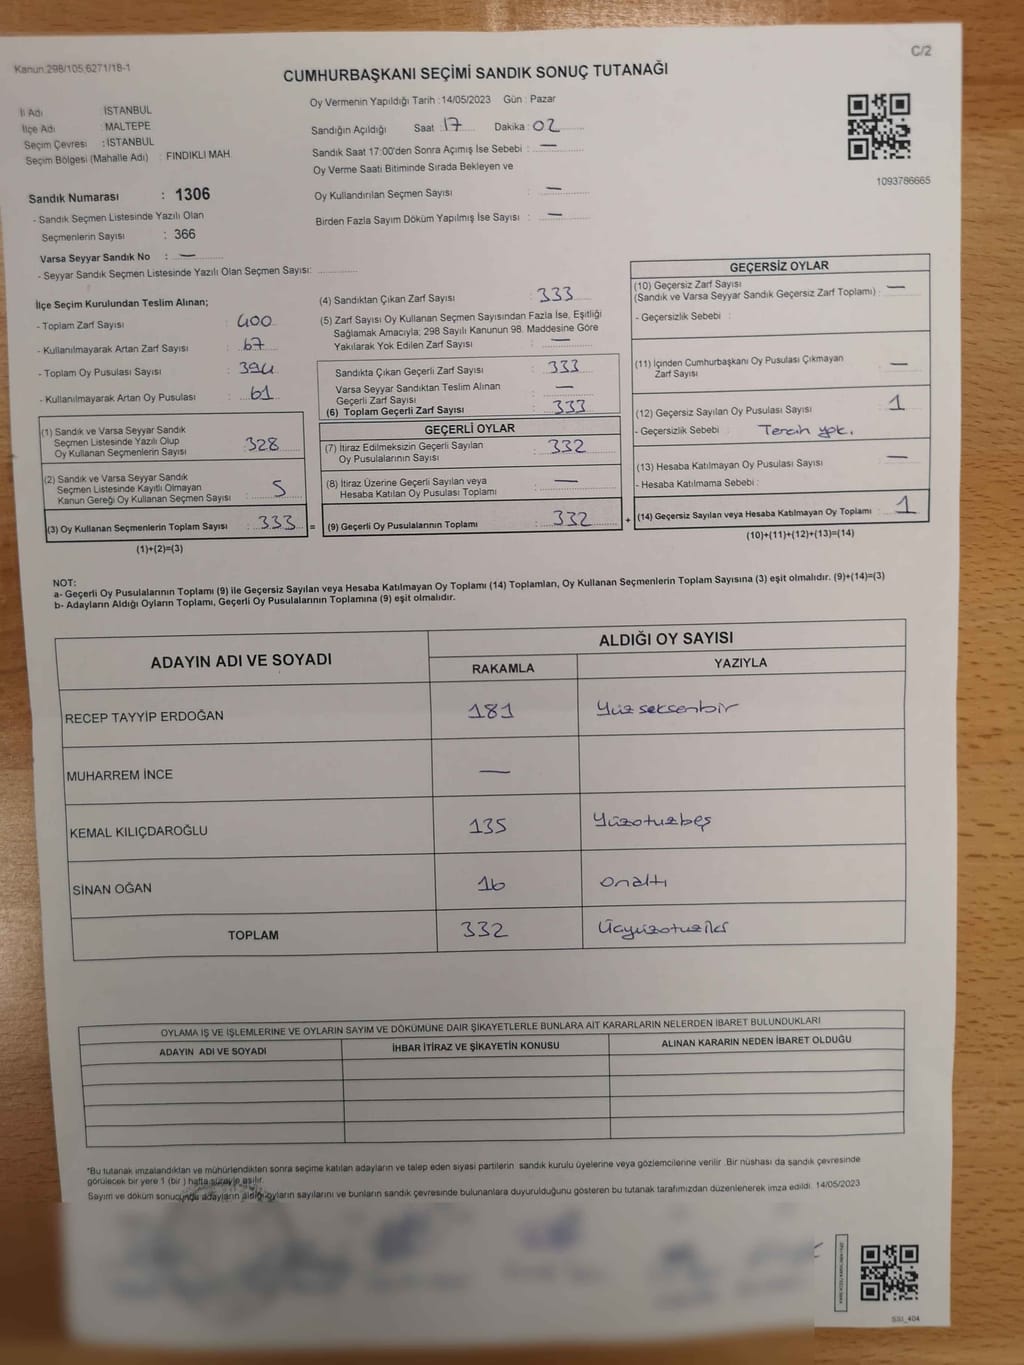 Kanun:298/105;6271/18-1
C/2
CUMHURBAŞKANI SEÇİMİ SANDIK SONUÇ TUTANAĞI
İl Adı : İSTANBUL
İlçe Adı : MALTEPE
Seçim Çevresi : İSTANBUL
Seçim Bölgesi (Mahalle Adı) : FINDIKLI MAH
Sandık Numarası : 1306
- Sandık Seçmen Listesinde Yazılı Olan
Seçmenlerin Sayısı : 366
Varsa Seyyar Sandık No : —
- Seyyar Sandık Seçmen Listesinde Yazılı Olan Seçmen Sayısı:
Oy Vermenin Yapıldığı Tarih :14/05/2023 Gün : Pazar
Sandığın Açıldığı Saat : 17 Dakika : 02
Sandık Saat 17:00'den Sonra Açımış İse Sebebi : —
Oy Verme Saati Bitiminde Sırada Bekleyen ve
Oy Kullandırılan Seçmen Sayısı : —
Birden Fazla Sayım Döküm Yapılmış İse Sayısı : —
1093786665
İlçe Seçim Kurulundan Teslim Alınan;
- Toplam Zarf Sayısı : 400
- Kullanılmayarak Artan Zarf Sayısı : 67
- Toplam Oy Pusulası Sayısı : 394
- Kullanılmayarak Artan Oy Pusulası : 61
(1) Sandık ve Varsa Seyyar Sandık
Seçmen Listesinde Yazılı Olup
Oy Kullanan Seçmenlerin Sayısı : 328
(2) Sandık ve Varsa Seyyar Sandık
Seçmen Listesinde Kayıtlı Olmayan
Kanun Gereği Oy Kullanan Seçmen Sayısı : 5
(3) Oy Kullanan Seçmenlerin Toplam Sayısı : 333 =
(1)+(2)=(3)
(4) Sandıktan Çıkan Zarf Sayısı : 333
(5) Zarf Sayısı Oy Kullanan Seçmen Sayısından Fazla İse, Eşitliği
Sağlamak Amacıyla; 298 Sayılı Kanunun 98. Maddesine Göre
Yakılarak Yok Edilen Zarf Sayısı : —
Sandıkta Çıkan Geçerli Zarf Sayısı : 333
Varsa Seyyar Sandıktan Teslim Alınan
Geçerli Zarf Sayısı : —
(6) Toplam Geçerli Zarf Sayısı : 333
GEÇERLİ OYLAR
(7) İtiraz Edilmeksizin Geçerli Sayılan
Oy Pusulalarının Sayısı : 332
(8) İtiraz Üzerine Geçerli Sayılan veya
Hesaba Katılan Oy Pusulası Toplamı : —
(9) Geçerli Oy Pusulalarının Toplamı : 332 +
GEÇERSİZ OYLAR
(10) Geçersiz Zarf Sayısı
(Sandık ve Varsa Seyyar Sandık Geçersiz Zarf Toplamı) : —
- Geçersizlik Sebebi :
(11) İçinden Cumhurbaşkanı Oy Pusulası Çıkmayan
Zarf Sayısı : —
(12) Geçersiz Sayılan Oy Pusulası Sayısı : 1
- Geçersizlik Sebebi : Tercih yok.
(13) Hesaba Katılmayan Oy Pusulası Sayısı : —
- Hesaba Katılmama Sebebi :
(14) Geçersiz Sayılan veya Hesaba Katılmayan Oy Toplamı : 1
(10)+(11)+(12)+(13)=(14)
NOT:
a- Geçerli Oy Pusulalarının Toplamı (9) ile Geçersiz Sayılan veya Hesaba Katılmayan Oy Toplamı (14) Toplamları, Oy Kullanan Seçmenlerin Toplam Sayısına (3) eşit olmalıdır. (9)+(14)=(3)
b- Adayların Aldığı Oyların Toplamı, Geçerli Oy Pusulalarının Toplamına (9) eşit olmalıdır.
ADAYIN ADI VE SOYADI
ALDIĞI OY SAYISI
RAKAMLA YAZIYLA
RECEP TAYYİP ERDOĞAN 181 Yüz seksenbir
MUHARREM İNCE —
KEMAL KILIÇDAROĞLU 135 Yüzotuzbeş
SİNAN OĞAN 16 Onaltı
TOPLAM 332 Üçyüzotuziki
OYLAMA İŞ VE İŞLEMLERİNE VE OYLARIN SAYIM VE DÖKÜMÜNE DAİR ŞİKAYETLERLE BUNLARA AİT KARARLARIN NELERDEN İBARET BULUNDUKLARI
ADAYIN ADI VE SOYADI İHBAR İTİRAZ VE ŞİKAYETİN KONUSU ALINAN KARARIN NEDEN İBARET OLDUĞU
*Bu tutanak imzalandıktan ve mühürlendikten sonra seçime katılan adayların ve talep eden siyasi partilerin sandık kurulu üyelerine veya gözlemcilerine verilir .Bir nüshası da sandık çevresinde
görülecek bir yere 1 (bir ) hafta süreyle asılır.
Sayım ve döküm sonucunda adayların aldığı oyların sayılarını ve bunların sandık çevresinde bulunanlara duyurulduğunu gösteren bu tutanak tarafımızdan düzenlenerek imza edildi. 14/05/2023
SSI_404